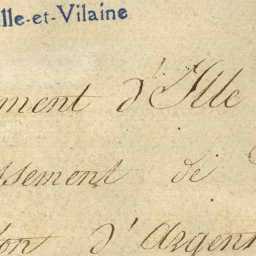 lle-et-Vilaine
ment d'Ille
ssement de
ton d'Argent